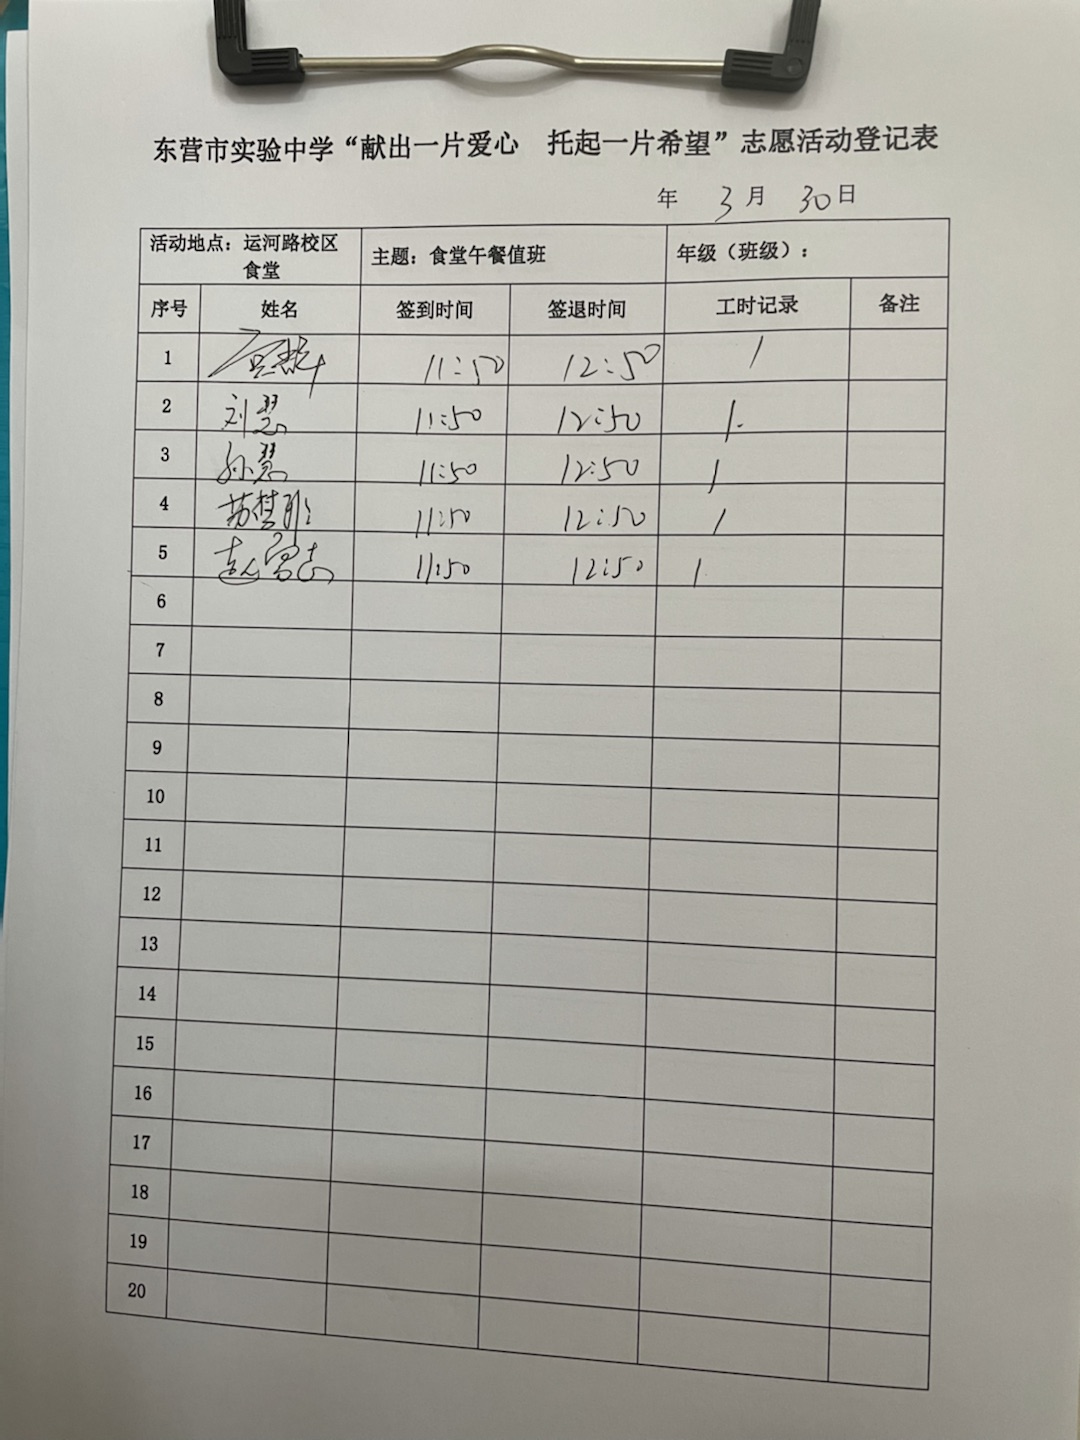 东营市实验中学“献出一片爱心　托起一片希望”志愿活动登记表
年 3月 30日
活动地点：运河路校区 主题：食堂午餐值班 年级（班级）：
食堂
序号 姓名 签到时间 签退时间 工时记录 备注
1 11:50 12:50 1
2 刘慧 11:50 12:50 1.
3 孙慧 11:50 12:50 1
4 苏梦彤 11:50 12:50 1
5 11:50 12:50 1
6
7
8
9
10
11
12
13
14
15
16
17
18
19
20